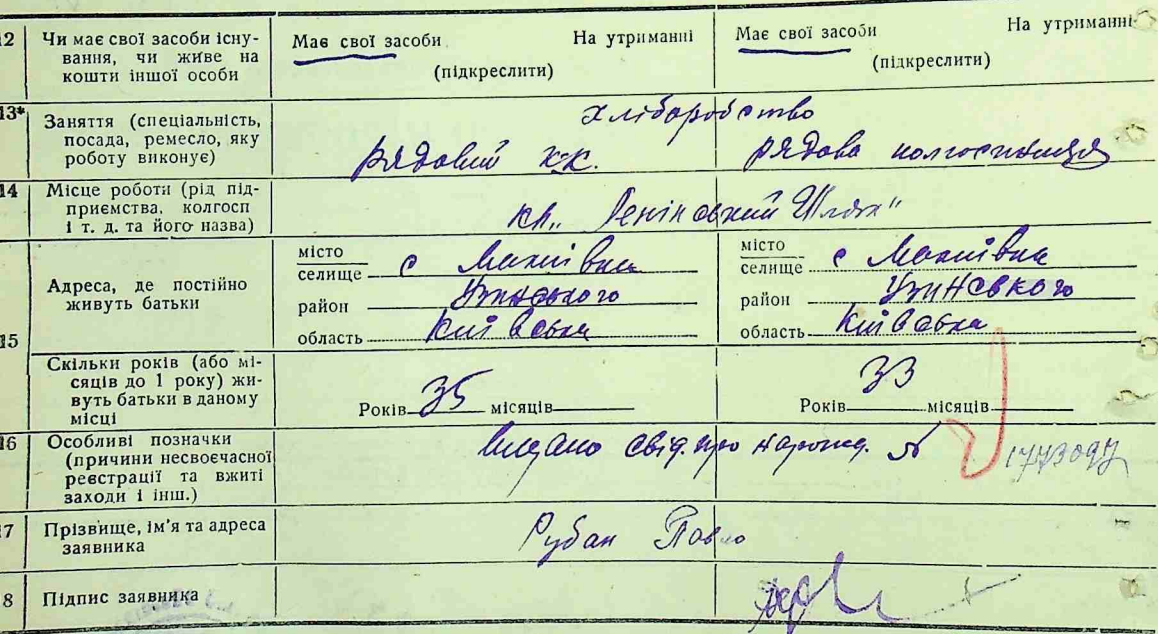 12 Чи має свої засоби існу-
вання, чи живе на
кошти іншої особи
Має свої засоби На утриманні
(підкреслити)
Має свої засоби На утриманні
(підкреслити)
13* Заняття (спеціальність,
посада, ремесло, яку
роботу виконує)
Хліборобство
рядовий к.к. рядова колгоспниця
14 Місце роботи (рід під-
приємства, колгосп
і т. д. та його назва)
кл. „Ленінський Шлях"
15 Адреса, де постійно
живуть батьки
місто
селище с Макіївка
район Узинського
область Київська
місто
селище с Макіївка
район Узинського
область Київська
Скільки років (або мі-
сяців до 1 року) жи-
вуть батьки в даному
місці
Років 35 місяців
Років 33 місяців
16 Особливі позначки
(причини несвоєчасної
реєстрації та вжиті
заходи і інш.)
Видано свід. про народж. №
17 Прізвище, ім'я та адреса
заявника
Рубан Павло
18 Підпис заявника